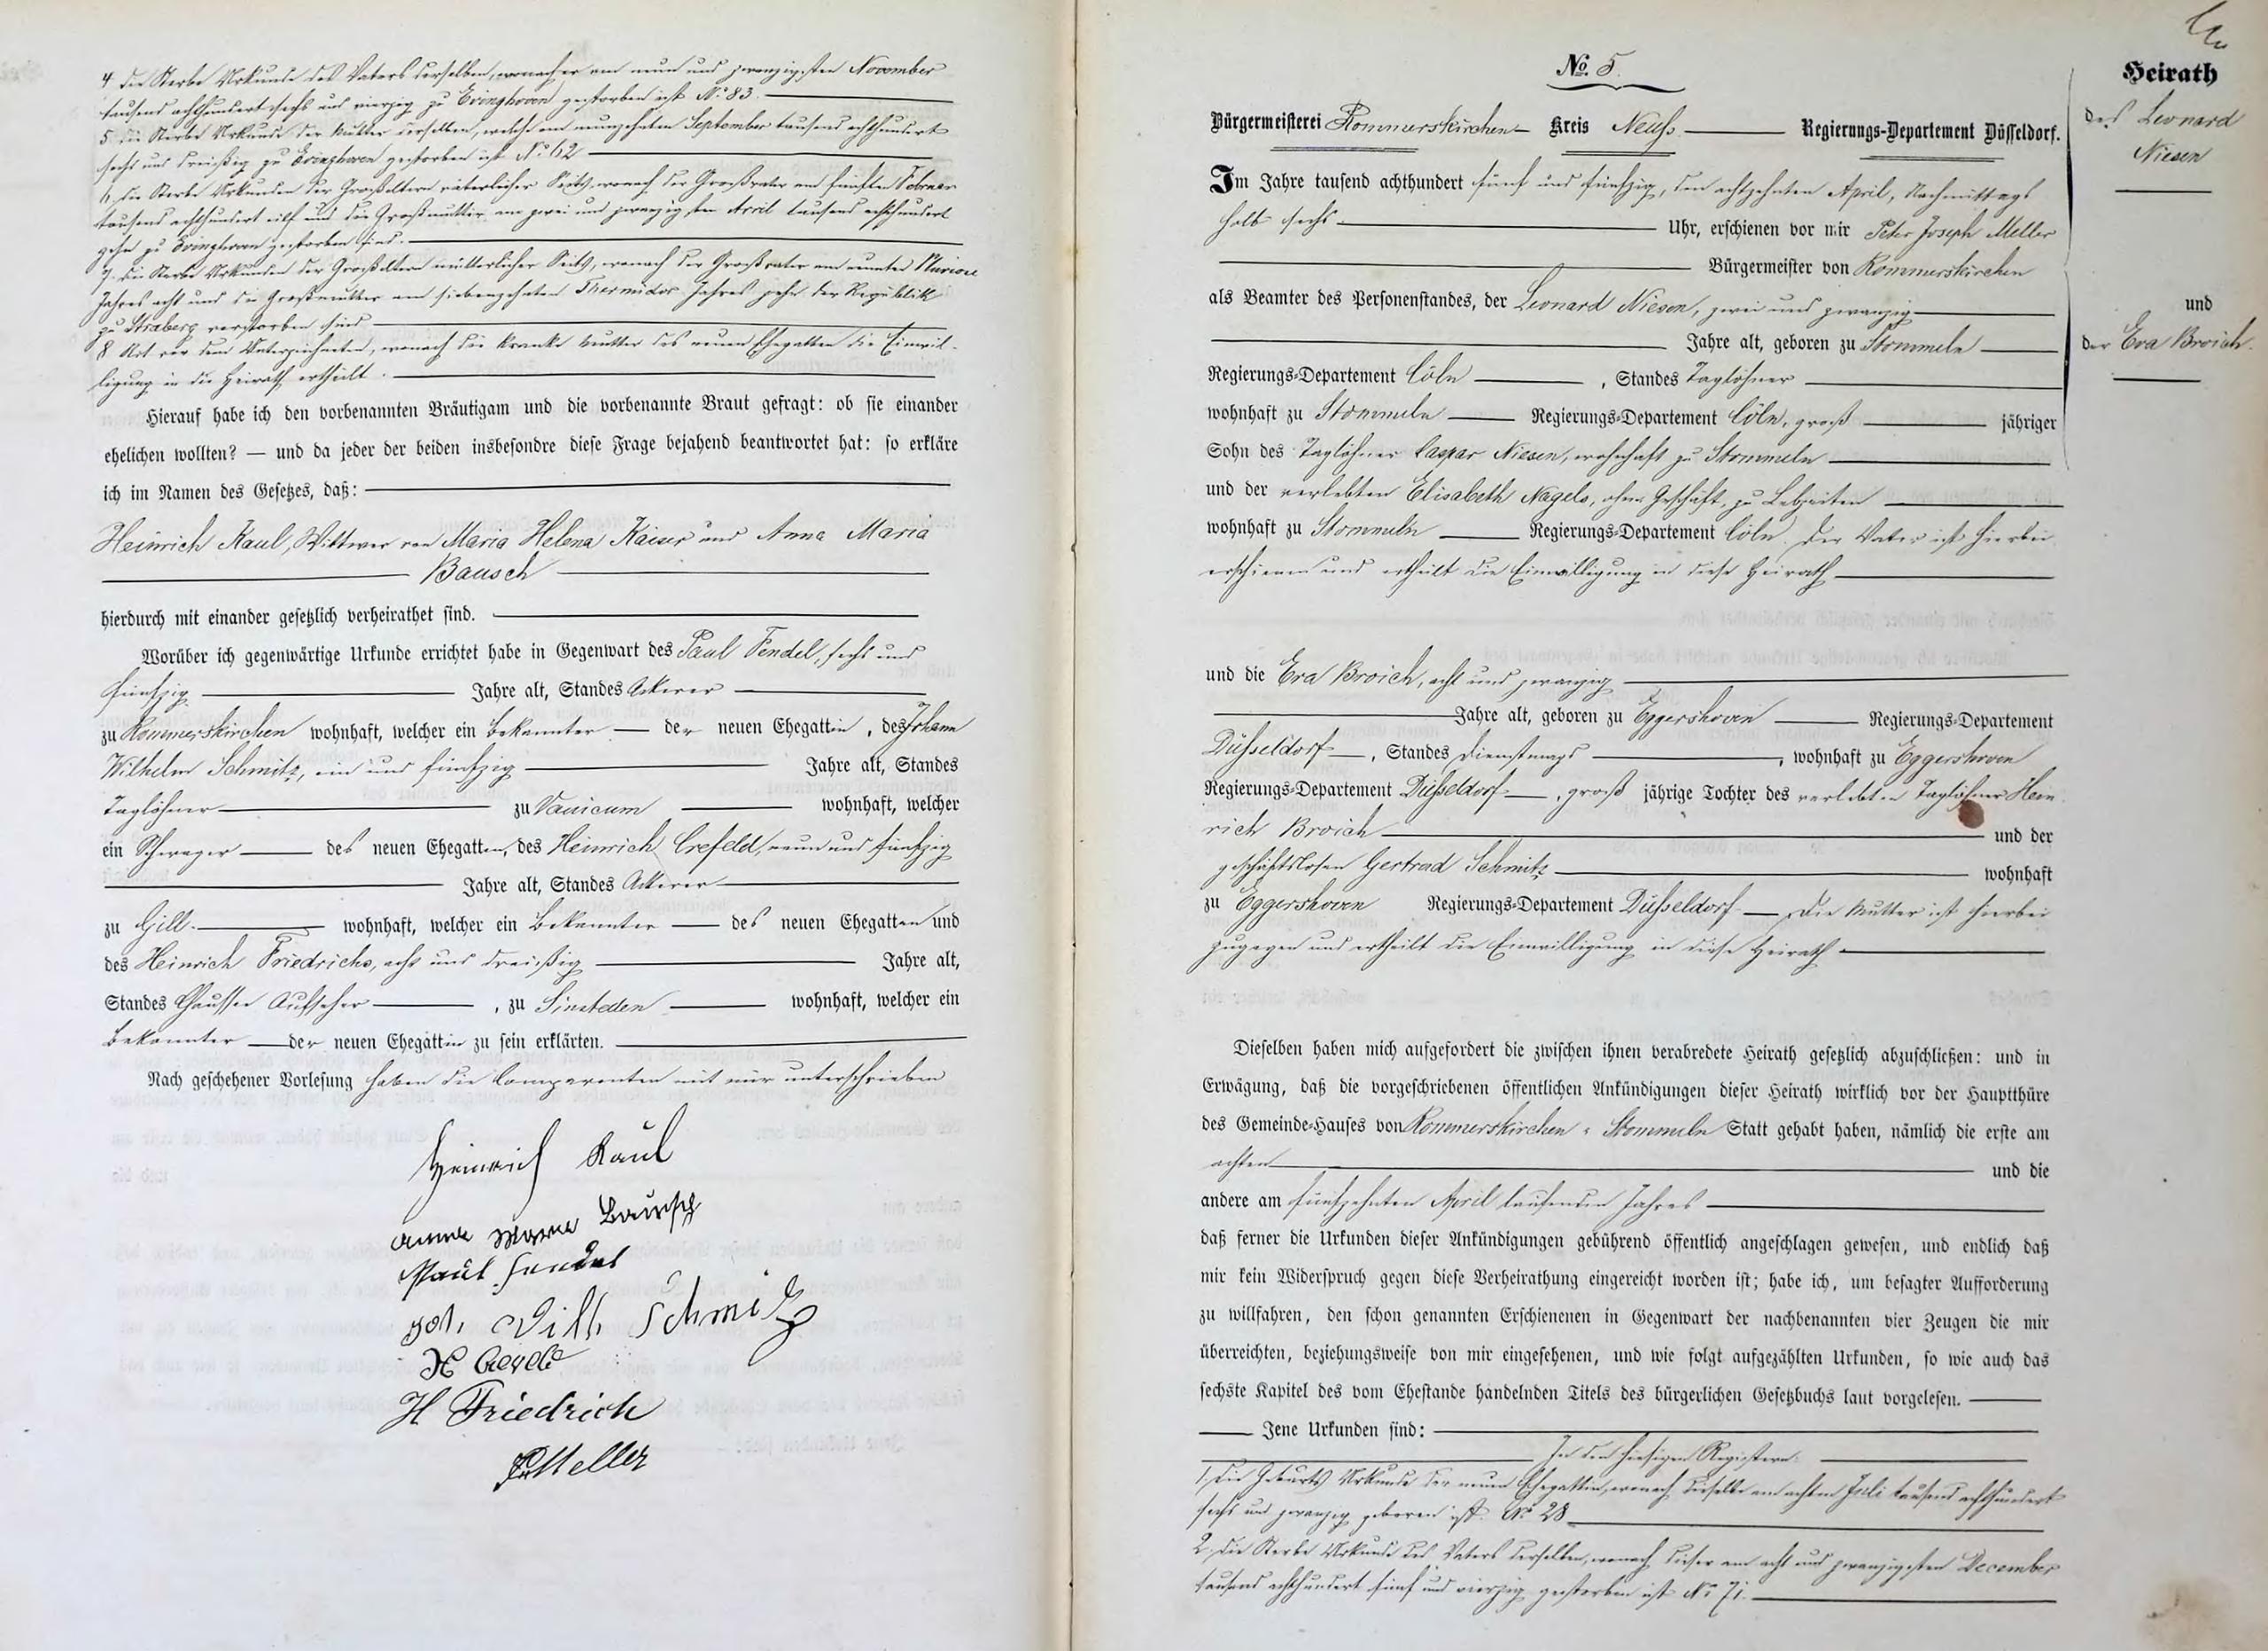 4 die Sterbe Urkunde des Vaters derselben, wonach er am neun und zwanzigsten November
tausend achthundert sechs und vierzig zu Evinghoven gestorben ist No 83.
5 die Sterbe Urkunde der Mutter derselben, welche am neunzehnten September tausend achthundert
sechs und dreißig zu Evinghoven gestorben ist No 62
6, die Sterbe Urkunden der Großeltern väterlicher Seits, wonach der Großvater am fünften Februar
tausend achthundert eilf und die Großmutter am zwei und zwanzigsten April tausend achthundert
zehn zu Evinghoven gestorben sind.
7. die Sterbe Urkunden der Großeltern mütterlicher Seits, wonach der Großvater am neunten Nivose
Jahres acht und die Großmutter am siebenzehnten Thermidor Jahres zehn der Republik
zu Straberg verstorben sind
8 Act vor dem Unterzeichneten, wonach die kranke Mutter des neuen Ehegatten die Einwil-
ligung in die Heirath ertheilt.
Hierauf habe ich den vorbenannten Bräutigam und die vorbenannte Braut gefragt: ob sie einander
ehelichen wollten? — und da jeder der beiden insbesondre diese Frage bejahend beantwortet hat: so erkläre
ich im Namen des Gesetzes, daß:
Heinrich Kaul, Wittwer von Maria Helena Kaiser und Anna Maria
Bausch
hierdurch mit einander gesetzlich verheirathet sind.
Worüber ich gegenwärtige Urkunde errichtet habe in Gegenwart des Paul Fendel, sechs und
fünfzig Jahre alt, Standes Ackerer
zu Rommerskirchen wohnhaft, welcher ein Bekannter — der neuen Ehegattin, des Johann
Wilhelm Schmitz, ein und fünfzig Jahre alt, Standes
Taglöhner zu Vanicum wohnhaft, welcher
ein Schwager des neuen Ehegatten, des Heinrich Crefeld, neun und fünfzig
Jahre alt, Standes Ackerer
zu Gill. wohnhaft, welcher ein Bekannter — des neuen Ehegatten und
des Heinrich Friedrichs, acht und dreißig Jahre alt,
Standes Chaussee Aufseher, zu Sinsteden wohnhaft, welcher ein
Bekannter — der neuen Ehegattin zu sein erklärten.
Nach geschehener Vorlesung haben die Comparenten mit mir unterschrieben
Heinrich Kaul
Anna Maria Bausch
Paul Fendel
Joh. Wilh. Schmitz
H
H Friedrich
PJMeller
No. 5.
Bürgermeisterei Rommerskirchen Kreis Neuß. Regierungs-Departement Düsseldorf.
Im Jahre tausend achthundert fünf und fünfzig, den achtzehnten April, Nachmittags
halb sechs Uhr, erschienen vor mir Peter Joseph Meller
Bürgermeister von Rommerskirchen
als Beamter des Personenstandes, der Leonard Niesen, zwei und zwanzig
Jahre alt, geboren zu Stommeln
Regierungs-Departement Cöln, Standes Taglöhner
wohnhaft zu Stommeln Regierungs-Departement Cöln, groß jähriger
Sohn des Taglöhner Caspar Niesen, wohnhaft zu Stommeln
und der verlebten Elisabeth Nagels, ohne Geschäft, zu Lebzeiten
wohnhaft zu Stommeln Regierungs-Departement Cöln. Der Vater ist hierbei
erschienen und ertheilt die Einwilligung in diese Heirath
und die Eva Broich, acht und zwanzig
Jahre alt, geboren zu Eggershoven Regierungs-Departement
Düsseldorf, Standes Dienstmagd, wohnhaft zu Eggershoven
Regierungs-Departement Düsseldorf, groß jährige Tochter des verlebten Taglöhner Hein
rich Broich und der
geschäftslosen Gertrad Schmitz wohnhaft
zu Eggershoven Regierungs-Departement Düsseldorf — Die Mutter ist hierbei
zugegen und ertheilt die Einwilligung in diese Heirath
Dieselben haben mich aufgefordert die zwischen ihnen verabredete Heirath gesetzlich abzuschließen: und in
Erwägung, daß die vorgeschriebenen öffentlichen Ankündigungen dieser Heirath wirklich vor der Hauptthüre
des Gemeinde-Hauses von Rommerskirchen - Stommeln Statt gehabt haben, nämlich die erste am
achten und die
andere am fünfzehnten April laufenden Jahres
daß ferner die Urkunden dieser Ankündigungen gebührend öffentlich angeschlagen gewesen, und endlich daß
mir kein Widerspruch gegen diese Verheirathung eingereicht worden ist; habe ich, um besagter Aufforderung
zu willfahren, den schon genannten Erschienenen in Gegenwart der nachbenannten vier Zeugen die mir
überreichten, beziehungsweise von mir eingesehenen, und wie folgt aufgezählten Urkunden, so wie auch das
sechste Kapitel des vom Ehestande handelnden Titels des bürgerlichen Gesetzbuchs laut vorgelesen.
Jene Urkunden sind:
In den hiesigen Registern.
1. Die Geburts Urkunde der neuen Ehegattin, wonach dieselbe am achten Juli tausend achthundert
sechs und zwanzig geboren ist. No 28
2. die Sterbe Urkunde des Vaters derselben, wonach dieser am acht und zwanzigsten December
tausend achthundert fünf und vierzig gestorben ist No 71.
Heirath
des Leonard
Niesen
und
der Eva Broich.